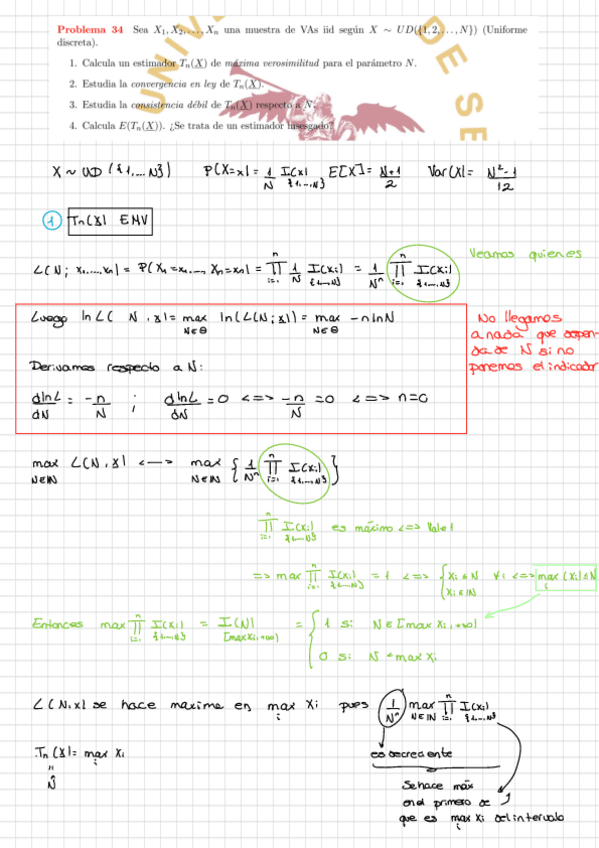 Problema 34 Sea X₁, X₂, …, Xₙ una muestra de VAs iid según X ∼ UD({1, 2, …, N}) (Uniforme
discreta).
1. Calcula un estimador Tₙ(X) de máxima verosimilitud para el parámetro N.
2. Estudia la convergencia en ley de Tₙ(X).
3. Estudia la consistencia débil de Tₙ(X) respecto a N.
4. Calcula E(Tₙ(X)). ¿Se trata de un estimador insesgado?
UNIV DE SE
X ~ UD ({1,...N}) P(X=x) = 1/N I(x) {1,...,N} E[X] = N+1/2 Var(X) = N²-1/12
1 Tn(X) EMV
L(N; x1,...,xn) = P(X1=x1..., Xn=xn) = ∏ i=1 n 1/N I(xi) {1,...,N} = 1/Nⁿ ∏ i=1 n I(xi) {1,...,N} Veamos quien es
Luego ln L( N, x) = max N∈Θ ln(L(N; x)) = max N∈Θ -n ln N
No llegamos
a nada que depen-
da de N si no
ponemos el indicador
Derivamos respecto a N:
dlnL/dN = -n/N ; dlnL/dN = 0 <=> -n/N = 0 <=> n=0
max N∈ℕ L(N, x) <-> max N∈ℕ { 1/Nⁿ ∏ i=1 n I(xi) {1,...,N} }
∏ i=1 n I(xi) {1,...,N} es máximo <=> vale 1
=> max ∏ i=1 n I(xi) {1,...,N} = 1 <=> { xi ≤ N xi ∈ ℕ ∀i <=> max i (xi) ≤ N
Entonces max ∏ i=1 n I(xi) {1,...,N} = I(N) [max xi, +∞) = { 1 si N ∈ [max xi, +∞)
0 si N < max xi
L(N, x) se hace maxima en max i xi pues 1/Nⁿ max N∈ℕ ∏ i=1 n I(xi) {1,...,N}
Tn(X) = max i xi es decreciente
=
N̂
Se hace máx
en el primero de
que es max i xi del intervalo